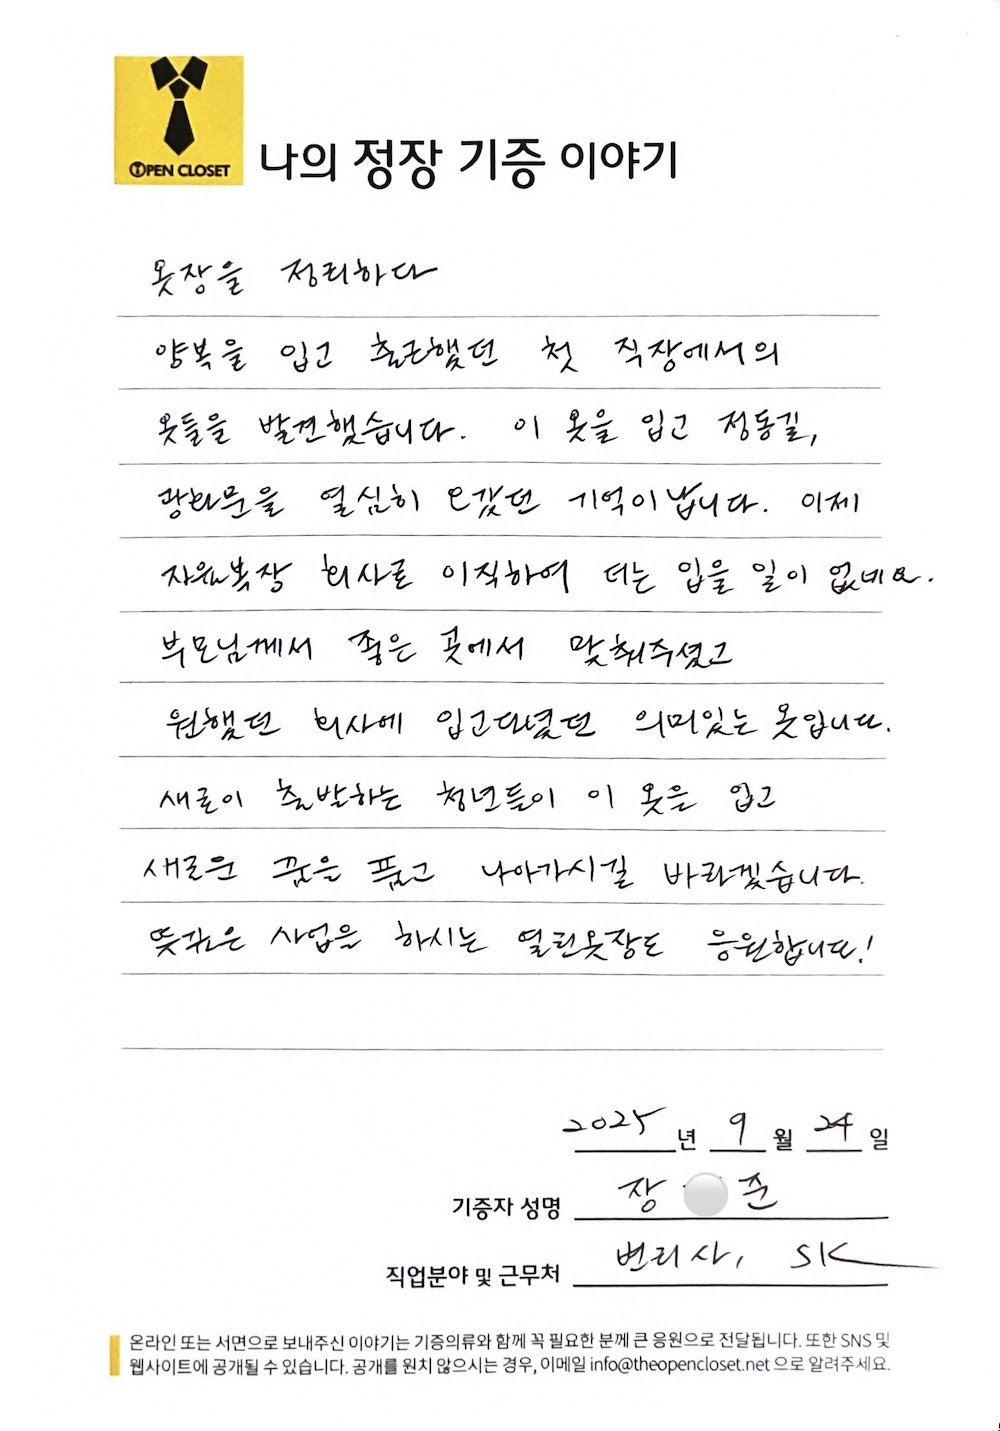 OPEN CLOSET
나의 정장 기증 이야기
옷장을 정리하다
양복을 입고 출근했던 첫 직장에서의
옷들을 발견했습니다. 이 옷을 입고 정동길,
광화문을 열심히 오갔던 기억이 납니다. 이제
자율복장 회사로 이직하여 더는 입을 일이 없네요.
부모님께서 좋은 곳에서 맞춰주셨고
원했던 회사에 입고다녔던 의미있는 옷입니다.
새로이 출발하는 청년들이 이 옷을 입고
새로운 꿈을 품고 나아가시길 바라겠습니다.
뜻깊은 사업을 하시는 열린옷장도 응원합니다!
2025년 9월 24일
기증자 성명 장 준
직업분야 및 근무처 변리사, SK
온라인 또는 서면으로 보내주신 이야기는 기증의류와 함께 꼭 필요한 분께 큰 응원으로 전달됩니다. 또한 SNS 및
웹사이트에 공개될 수 있습니다. 공개를 원치 않으시는 경우, 이메일 info@theopencloset.net 으로 알려주세요.